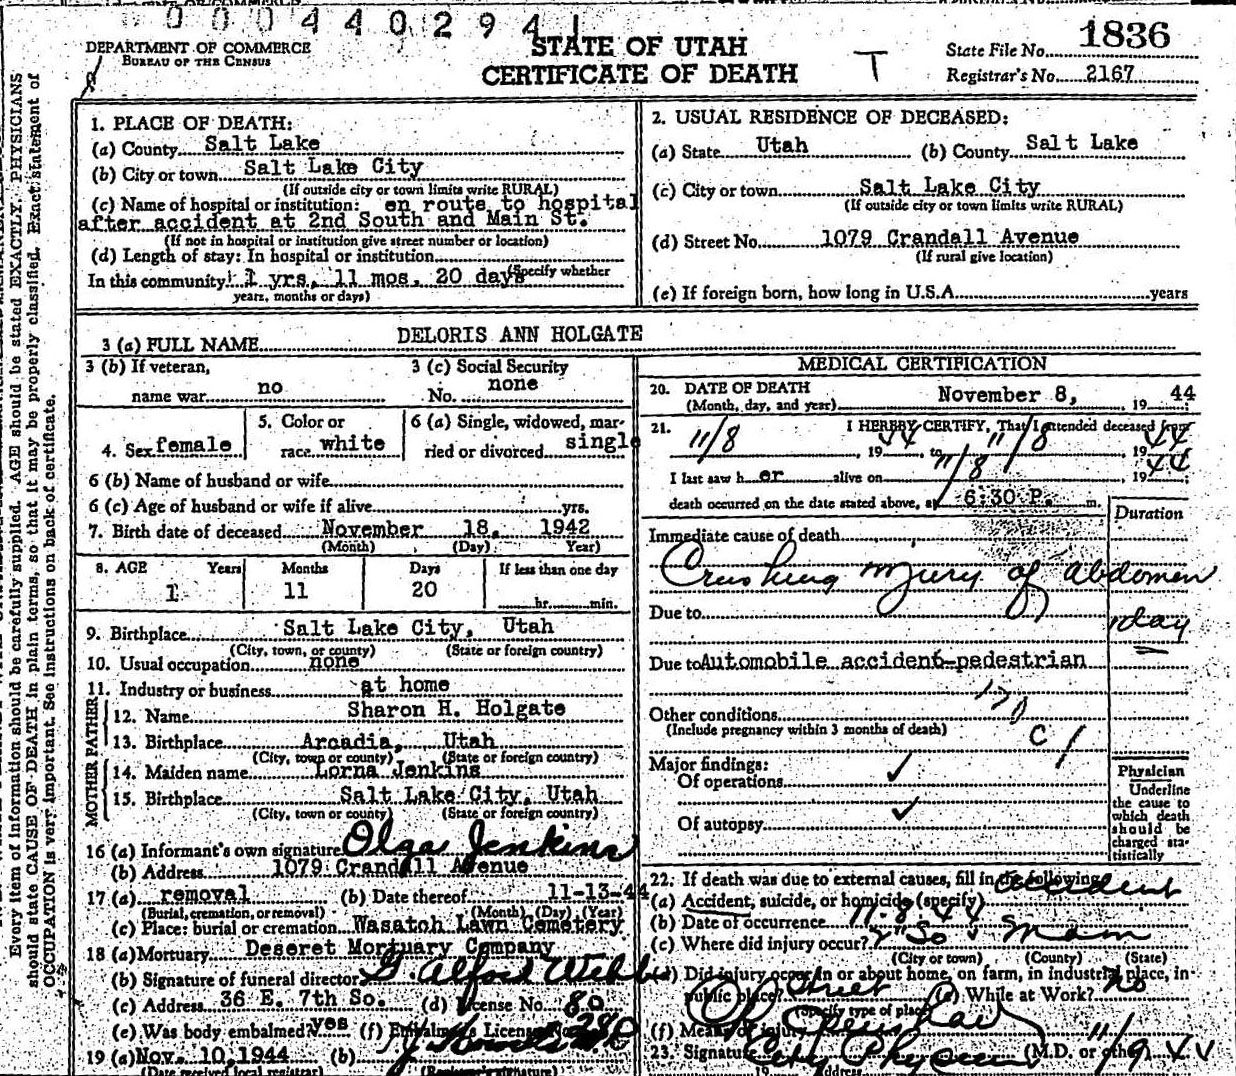 0004402941
DEPARTMENT OF COMMERCE
BUREAU OF THE CENSUS
STATE OF UTAH
CERTIFICATE OF DEATH
T
State File No. 1836
Registrar's No. 2167
Every item of information should be carefully supplied. AGE should be stated EXACTLY. PHYSICIANS
should state CAUSE OF DEATH in plain terms, so that it may be properly classified. Exact statement of
OCCUPATION is very important. See instructions on back of certificate.
1. PLACE OF DEATH:
(a) County Salt Lake
(b) City or town Salt Lake City
(If outside city or town limits write RURAL)
(c) Name of hospital or institution: en route to hospital
after accident at 2nd South and Main St.
(If not in hospital or institution give street number or location)
(d) Length of stay: In hospital or institution
In this community 1 yrs. 11 mos. 20 days (Specify whether
years, months or days)
2. USUAL RESIDENCE OF DECEASED:
(a) State Utah (b) County Salt Lake
(c) City or town Salt Lake City
(If outside city or town limits write RURAL)
(d) Street No. 1079 Crandall Avenue
(If rural give location)
(e) If foreign born, how long in U.S.A. years
3 (a) FULL NAME DELORIS ANN HOLGATE
3 (b) If veteran, name war no
3 (c) Social Security No. none
4. Sex female
5. Color or race white
6 (a) Single, widowed, married or divorced single
6 (b) Name of husband or wife
6 (c) Age of husband or wife if alive yrs.
7. Birth date of deceased November 18, 1942
(Month) (Day) Year)
8. AGE Years Months Days If less than one day
1 11 20 hr. min.
9. Birthplace Salt Lake City, Utah
(City, town, or county) (State or foreign country)
10. Usual occupation none
11. Industry or business at home
FATHER
12. Name Sharon H. Holgate
13. Birthplace Arcadia, Utah
(City, town or county) (State or foreign country)
MOTHER
14. Maiden name Lorna Jenkins
15. Birthplace Salt Lake City, Utah
(City, town or county) (State or foreign country)
16 (a) Informant's own signature Olga Jenkins
(b) Address 1079 Crandall Avenue
17 (a) removal (b) Date thereof 11-13-44
(Burial, cremation, or removal) (Month) (Day) (Year)
(c) Place: burial or cremation Wasatch Lawn Cemetery
18 (a) Mortuary Deseret Mortuary Company
(b) Signature of funeral director
(c) Address 36 E. 7th So. (d) License No. 80
(e) Was body embalmed? yes (f) Embalmer's License No.
19 (a) Nov. 10, 1944 (b)
(Date received local registrar) (Registrar's signature)
MEDICAL CERTIFICATION
20. DATE OF DEATH
(Month, day, and year) November 8, 19 44
21. I HEREBY CERTIFY, That I attended deceased from
11/8, 19 44 to 11/8, 19 44
I last saw h er alive on 11/8 19 44
death occurred on the date stated above, at 6:30 P. m.
Duration
Immediate cause of death
Crushing injury of abdomen
1 day
Due to
Due to Automobile accident-pedestrian
170
Other conditions
(Include pregnancy within 3 months of death)
C 1
Major findings:
Of operations ✓
Of autopsy ✓
Physician
Underline
the cause to
which death
should be
charged sta-
tistically
22. If death was due to external causes, fill in the following:
(a) Accident, suicide, or homicide (specify) accident
(b) Date of occurrence 11-8-44
(c) Where did injury occur? 2nd So & Main
(City or town) (County) (State)
(d) Did injury occur in or about home, on farm, in industrial place, in
public place? Street (e) While at Work? no
(Specify type of place)
(f) Means of injury
23. Signature (M.D. or other) 11/9 44
City Physician
19 Address